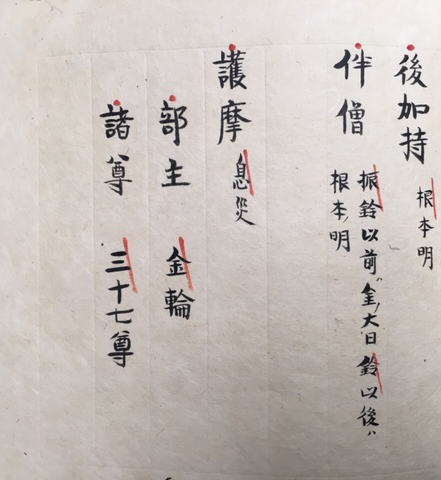 後加持 根本明
伴僧 振鈴以前ハ金大日鈴以後ハ
根本明
護摩 息災
部主 金輪
諸尊 三十七尊